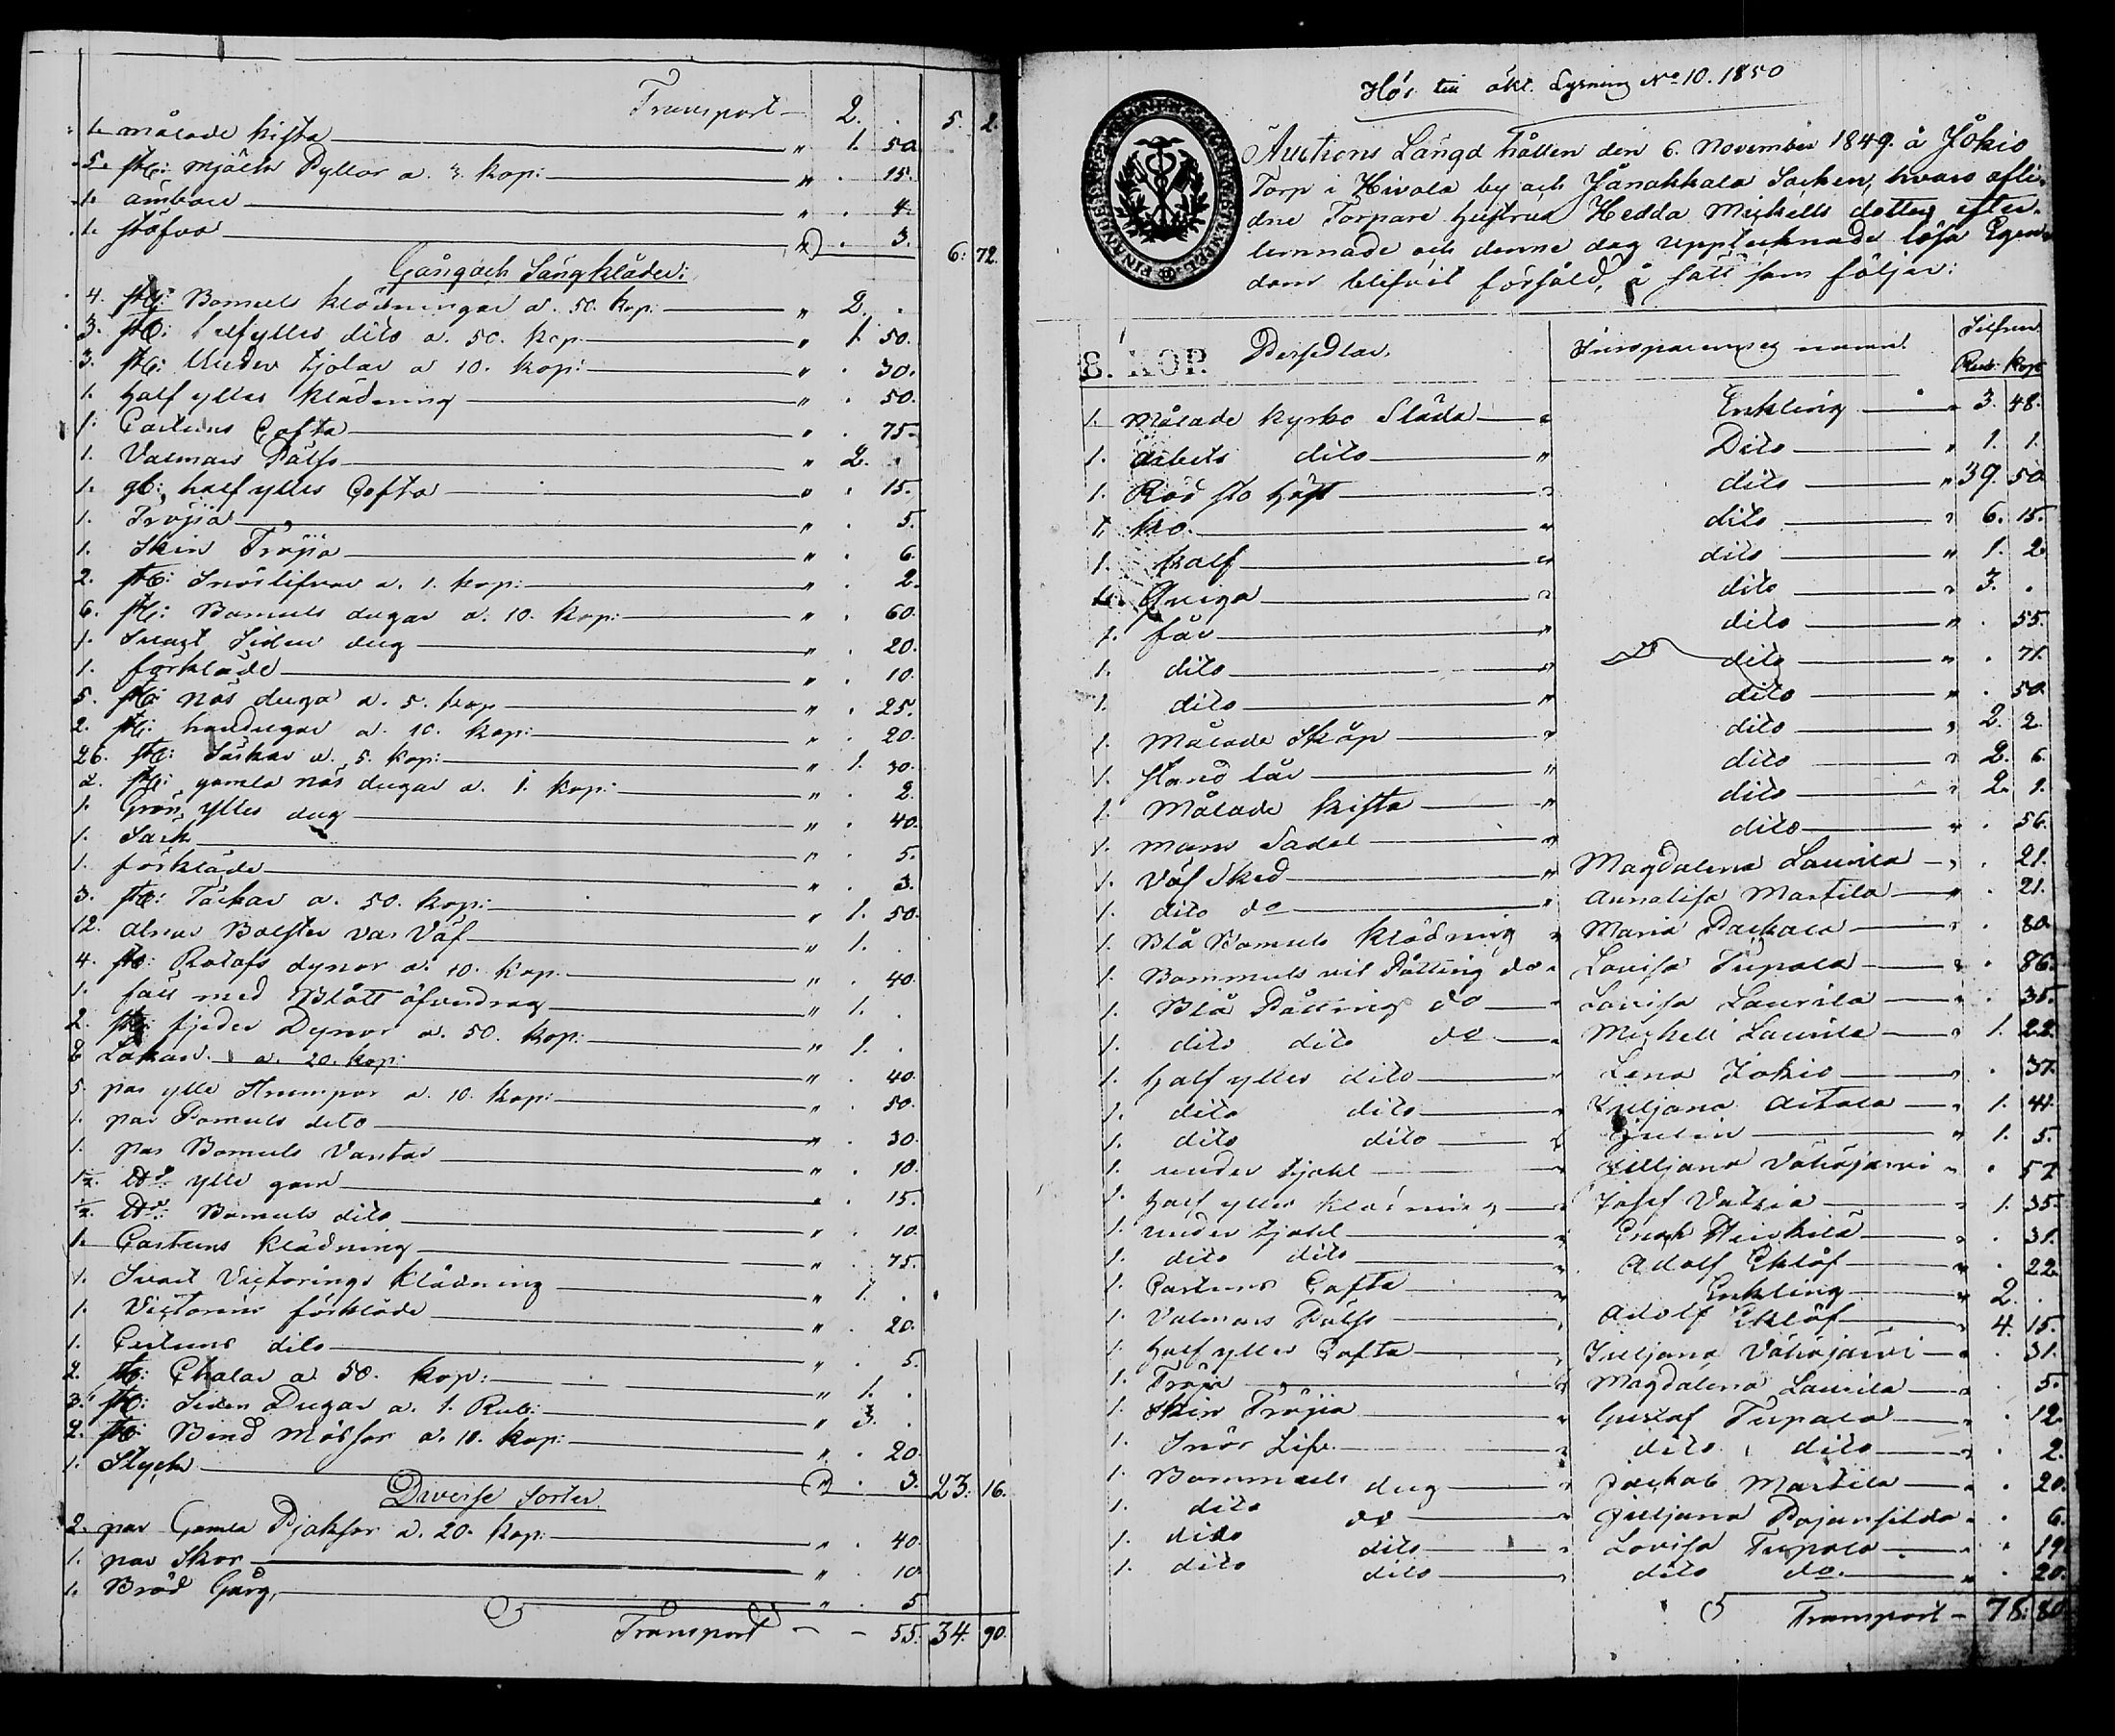 Transport — 2. . 5. 2.
1. målade kista — " 1. 50
5. st: mjölk Pyttor a. 3. kop: — " . 15.
1. ämbare — " . 4.
1. stöfva — " . 3. 6: 72.
Gång och Sängkläder:
4. st: Bomuls klädningar a. 50. kop: — " 2. .
3. st: halfylles dito a. 50. kop — " 1. 50.
3. st: Under kjolar a 10. kop: — " . 30.
1. half ylles klädning — " . 50.
1. Cartuns Cofta — " . 75.
1. Valmars Pälss — " 2. .
1. gl: half ylles Cofta — " . 15.
1. Tröjia — " . 5.
1. Skin Tröjia — " . 6.
2. st: Snörlifvar a. 1. kop: — " . 2.
6. st: Bomuls dugar a. 10. kop: — " . 60.
1. Svart Siden dug — " . 20.
1. förkläde — " . 10.
5. st: näs dugar a. 5. kop — " . 25.
2. st: handugar a. 10. kop: — " . 20.
26. st: Särkar a. 5. kop: — " 1. 30.
2. st: gamla näs dugar a. 1. kop: — " . 2.
1. Grön, ylles dug — " . 40.
1. Säck — " . 5.
1. förkläde — " . 3.
3. st: Täckar a. 50. kop: — " 1. 50.
12. alnar Bolster vars Väf — " 1. .
4. st: dynor a. 10. kop. — " . 40.
1. fäll med Blått öfverdrag — " 1. .
2. st: fjeder Dynor a. 50. kop: — " 1. .
2 Lakan a. 20. kop: — " . 40.
5. par ylle Strumpor a. 10. kop: — " . 50.
1. par Bomuls dito — " . 30.
1. par Bomuls Vantar — " . 10.
1½. ylle garn — " . 15.
½. Bomuls dito — " . 10.
1. Cartuns klädning — " . 75.
1. Svart Victorings klädning — " 1. .
1. Victorins förkläde — " . 20.
1. Cartuns dito — " . 5.
2. st: Chalar a 50. kop: — " 1. .
3. st: Siden Dugar a. 1. Rub: — " 3. .
2. st: Bind mössor a. 10. kop: — " . 20.
1. Stycke — " . 3. 23: 16.
Diverse sorter
2. par Gamla Pjäksor a. 20. kop: — " . 40.
1. par Skor — " . 10.
1. Bröd Gårg, — " . 5
Transport — — 55. 34. 90.
Hör till åkl. Lysning No 10. 1850
Auctions Längd hållen den 6. November 1849. å Jokio
Torp i Hivola by och Janakkala Socken, hvars afli-
dne Torpare hustrun Hedda Michells dotters efter-
lemnade och denne dag upptecknade lösa Egen-
dom blifvit försåld, å sätt som följer:
8. KOP. Persedlar. Inroparenes namn. Silfver
Rub: Kop:
1. Målade kyrko Släda — " Enkling — " 3. 48.
1. arbets dito — " Dito — " 1. 1.
1. Röd sto häst — " dito — " 39. 50
1. ko. — " dito — " 6. 15.
1. kalf — " dito — " 1. 2.
1. Qviga — " dito — " 3. .
1. får — " dito — " . 55.
1. dito — " dito — " . 71.
1. dito — " dito — " . 50.
1. Målade Skåp — " dito — " 2. 2.
1. stand lår — " dito — " 2. 6.
1. Målade kista — " dito — " 2. 1.
1. mans Sadel — " dito — " . 56.
1. Väf Sked — " Magdalena Laurila — " . 21.
1. dito do — " Annalisa Martila — " . 21.
1. Blå Bomuls klädning " Maria — " . 80.
1. Bommuls vit Råtting do " Lovisa Tupala — " . 86.
1. Blå Råtting do — " Lovisa Laurila — " . 35.
1. dito dito do — " Michell Laurila — " 1. 22.
1. half ylles dito — " Lena Jokio — " . 37.
1. dito dito — " Juljana aitala — " 1. 41.
1. dito dito — " Julin — " 1. 5.
1. under kjohl — " Juljana Vähäjärvi — " . 57.
1. half ylles klädning — " Josef — " 1. 35.
1. under kjohl — " Enok Heikilä — " . 31.
1. dito dito — " Adolf Eklöf — " . 22.
1. Cartuns Cofta — " Enkling — " 2. .
1. Valmars Pälss — " Adolf Eklöf — " 4. 15.
1. half ylles Cofta — " Juljana Vähäjärvi — " . 31.
1. Tröja — " Magdalena Laurila — " . 5.
1. Skin Tröjia — " Gustaf Tupala — " . 12.
1. Snör Lif — " dito dito — " . 2.
1. Bommuls dug — " Jackob Martila — " . 20.
1. dito do — " Juljana Pajunsilda " . 6.
1. dito dito — " Lovisa Tupala — " . 19.
1. dito dito — " dito do. — " . 20.
Transport — 78: 80